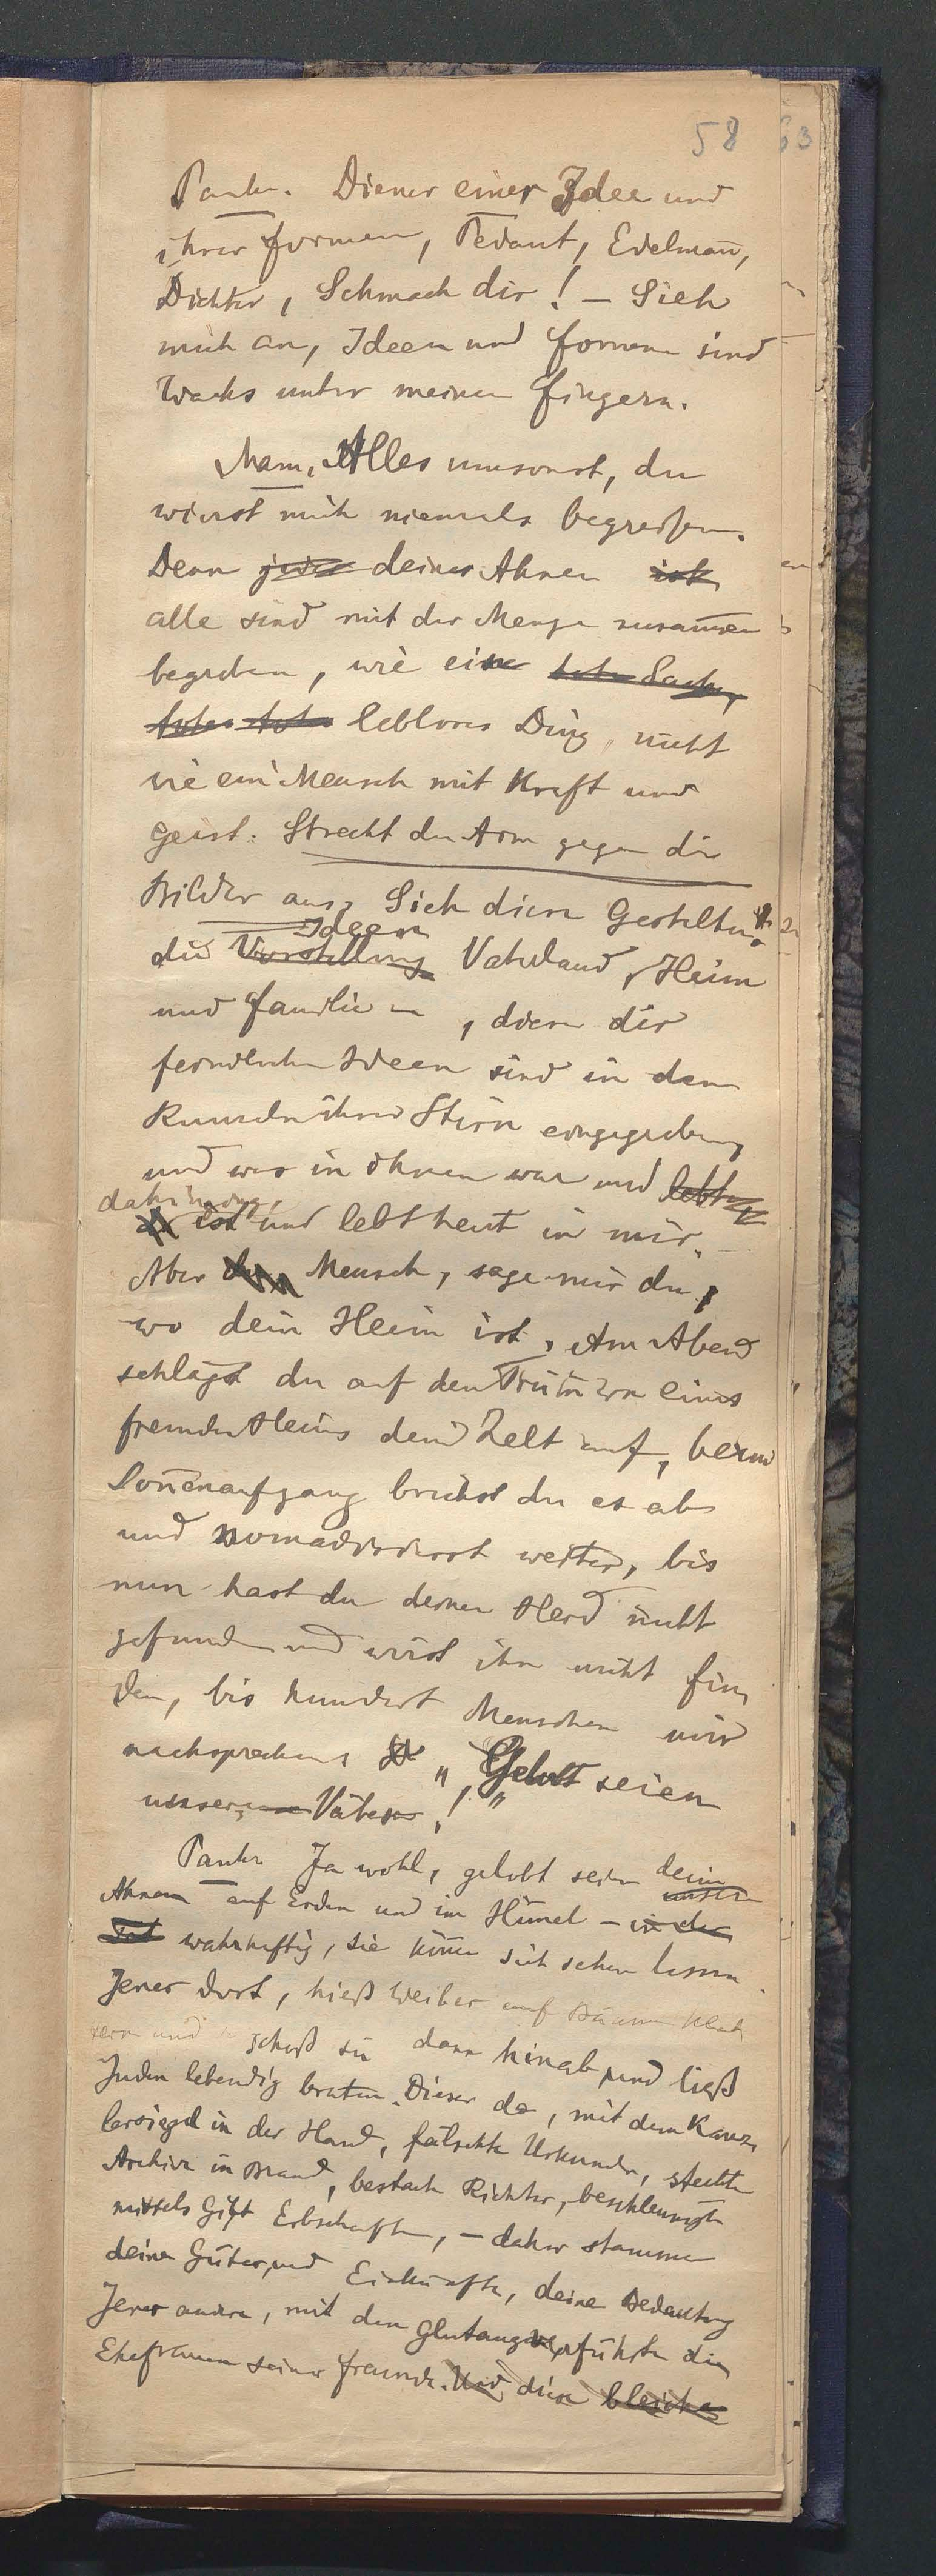 58 63
Pankr. Diener einer Idee und
ihrer Formen, Pedant, Edelmañ,
Dichter, Schmach dir! – Sieh
mich an, Ideen und Formen sind
Wachs unter meinen Fingern.
Mann. Alles umsonst, du
wirst mich niemals begreifen.
Denn jeder deiner Ahnen ist
alle sind mit der Menge zusam̄en
begraben, wie eine tote Sache,
totes totes lebloses Ding, nicht
wie ein Mensch mit Kraft und
Geist. Streckt den Arm gegen die
Bilder aus. Sieh diese Gestalten
Ideen
die Vorstellung Vaterland, Heim
und Familie, diese dir
feindlichen Ideen sind in den
Runzeln ihrer Stirn eingegraben,
und was in ihnen war und lebte
dahinging,
ist und lebt heut in mir.
Aber du Mensch, sage mir du,
wo dein Heim ist. Am Abend
schlägst du auf den Trüm̄ern eines
fremden Heims dein Zelt auf, beim
Soñenaufgang brichst du es ab
und nomadisierst weiter, bis
nun hast du deinen Herd nicht
gefunden und wirst ihn nicht fin
den, bis hundert Menschen mir
nachsprechen „Gelobt seien
unsere Väter!"
Pankr Ja wohl, gelobt seien deine
unsere
Ahnen auf Erden und im Him̄el – in der
Tat wahrhaftig, sie köñen sich sehen lassen
Jener dort, hieß Weiber auf Bäume klet
tern und schoß sie dann hinab und ließ
Juden lebendig braten. Dieser da, mit dem Kanz
lersiegel in der Hand, fälschte Urkunden, steckte
Archive in Brand, bestach Richter, beschleunigte
mittels Gift Erbschaften, – daher stammen
deine Güter, und Einkünfte, deine Bedeutung
Jener andere, mit den Glutaugen verführte die
Ehefrauen seiner Freunde. Und diese bleiche